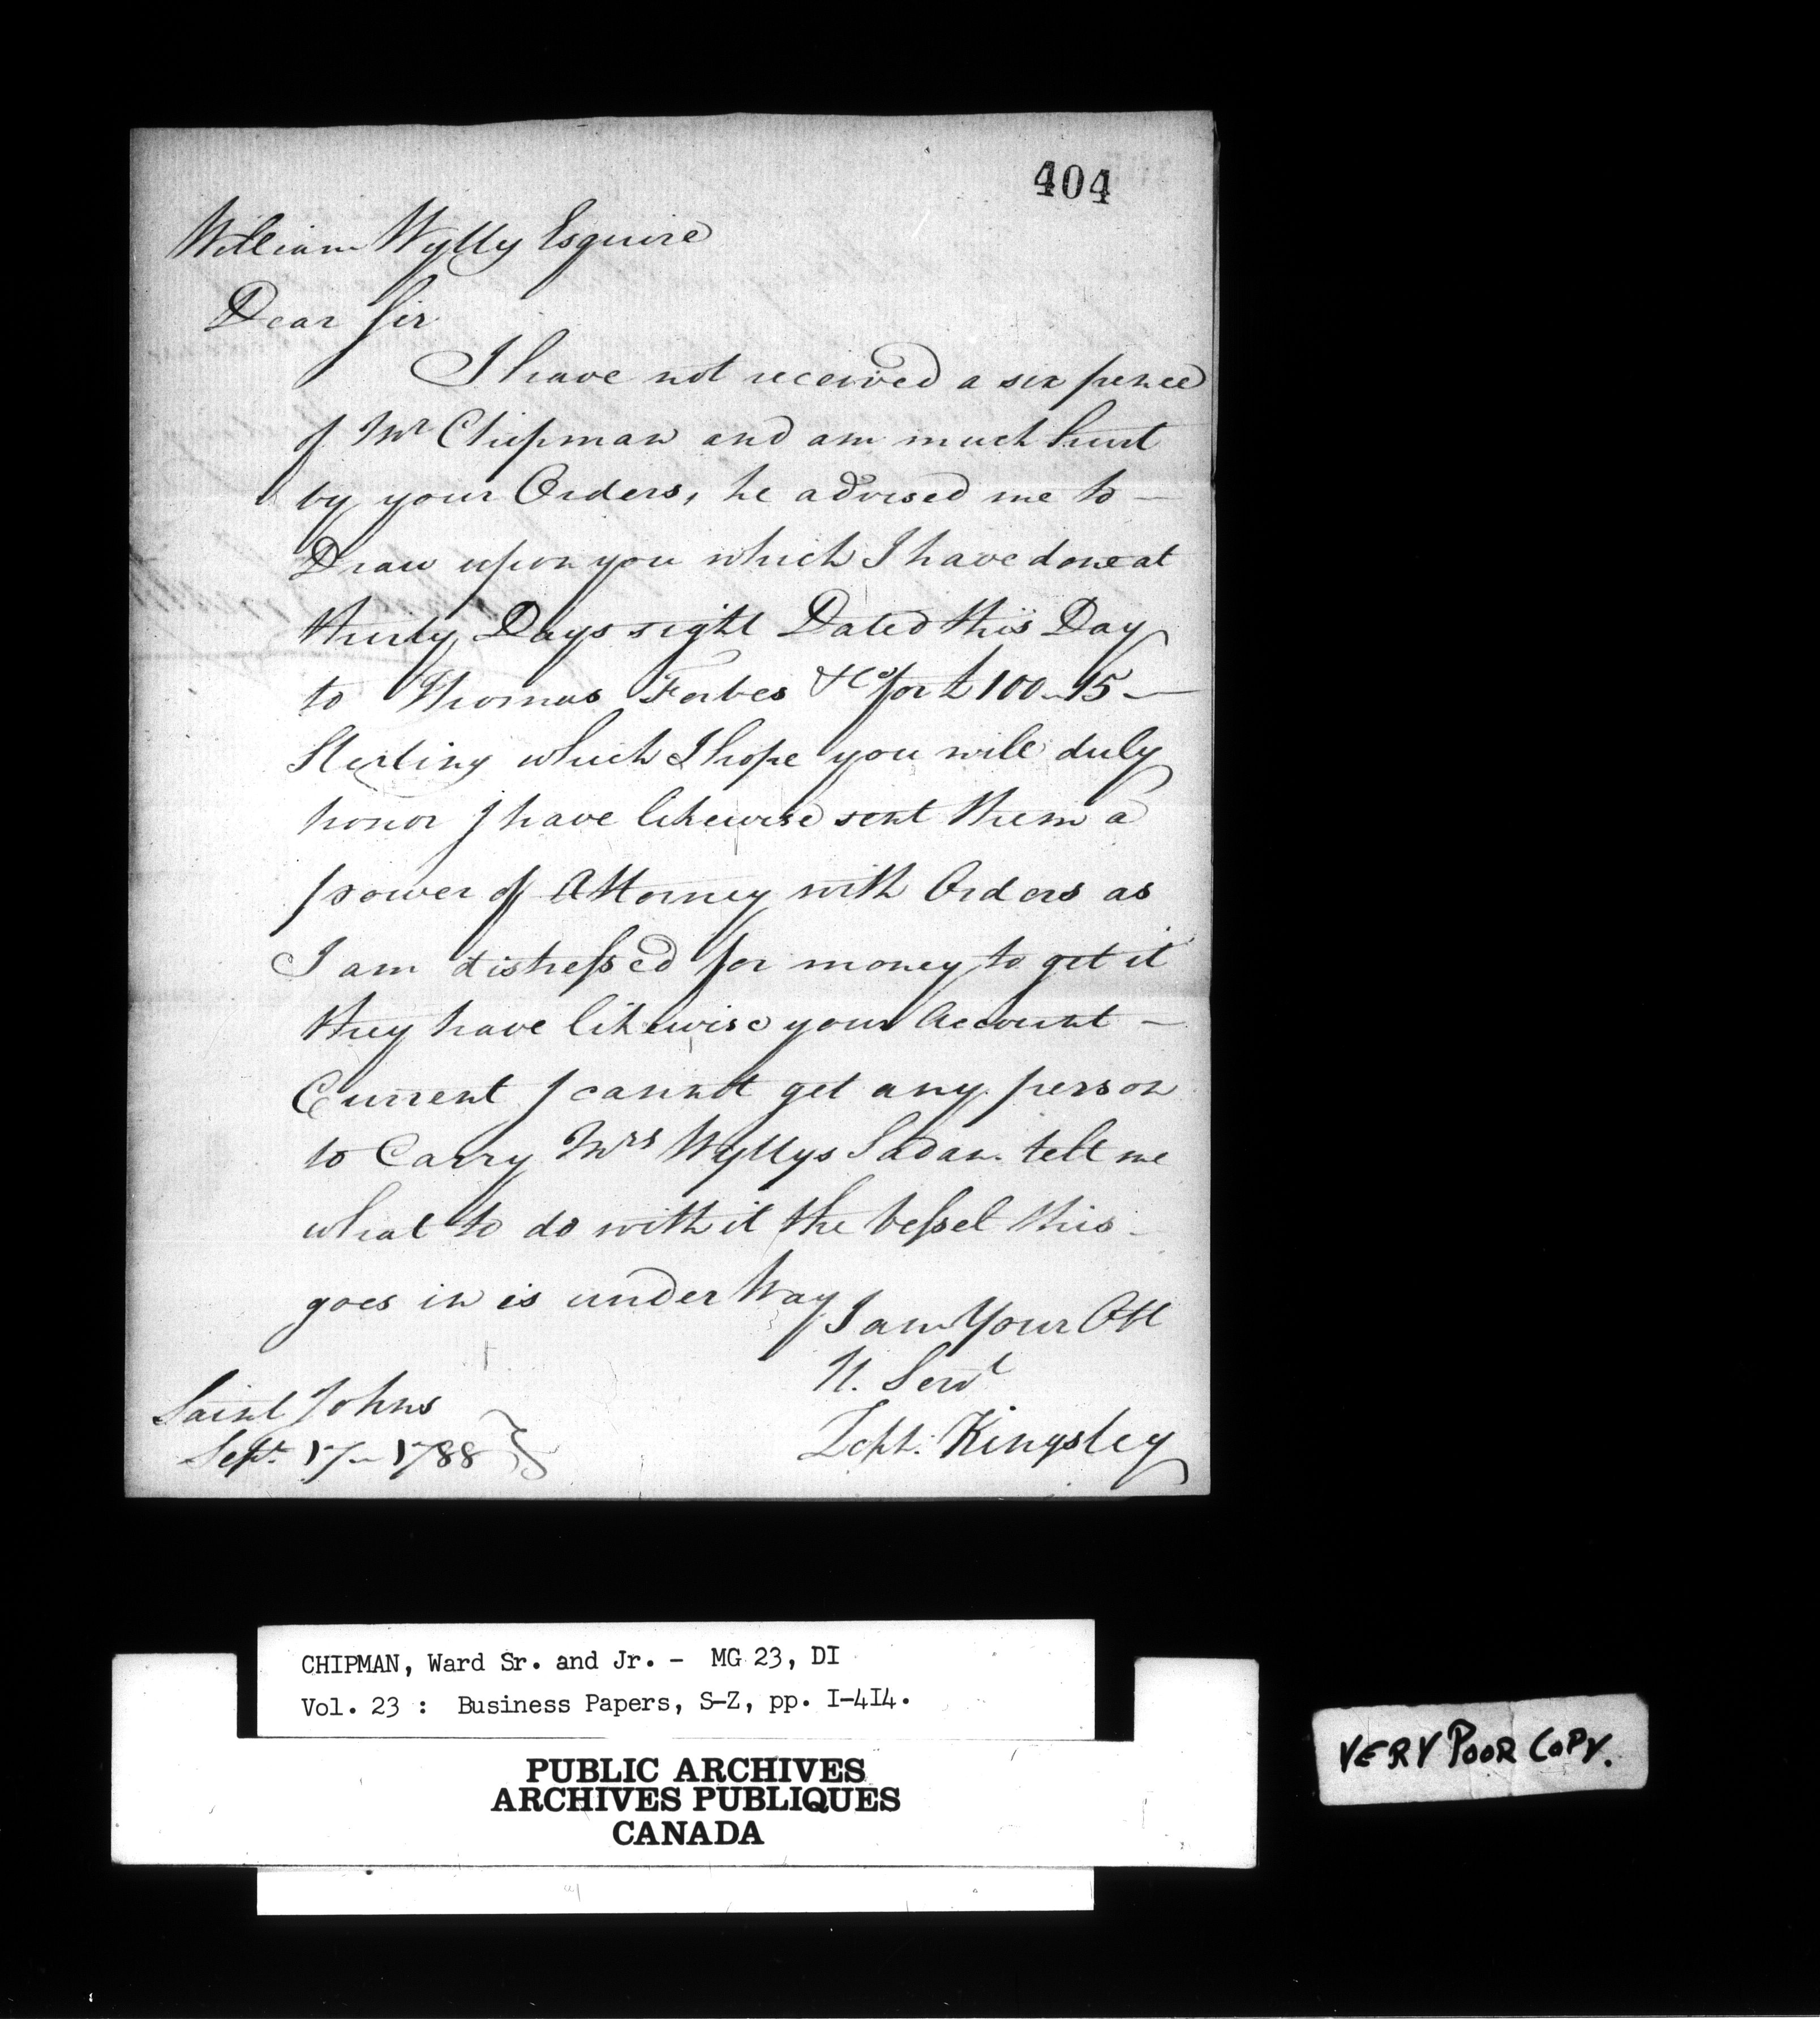 404
William Wylly Esquire
Dear Sir
I have not received a six pence
of Mr Chipman and am much hurt
by your Orders, he advised me to —
Draw upon you which I have done at
thirty Days sight Dated this Day
to Thomas Forbes & Co for £100 – 15 —
Sterling which I hope you will duly
honor I have likewise sent them a
power of Attorney with Orders as
I am distressed for money to get it
they have likewise your Account —
Current I cannot get any person
to Carry Mrs Wyllys Sedan tell me
what to do with it the Vessel this —
goes in is under Way
I am Your Obt
H. Servt
Zepht: Kingsley
Saint Johns
Sept. 17 – 1788
CHIPMAN, Ward Sr. and Jr. - MG 23, DI
Vol. 23 : Business Papers, S-Z, pp. I-4I4.
PUBLIC ARCHIVES
ARCHIVES PUBLIQUES
CANADA
VERY POOR COPY.